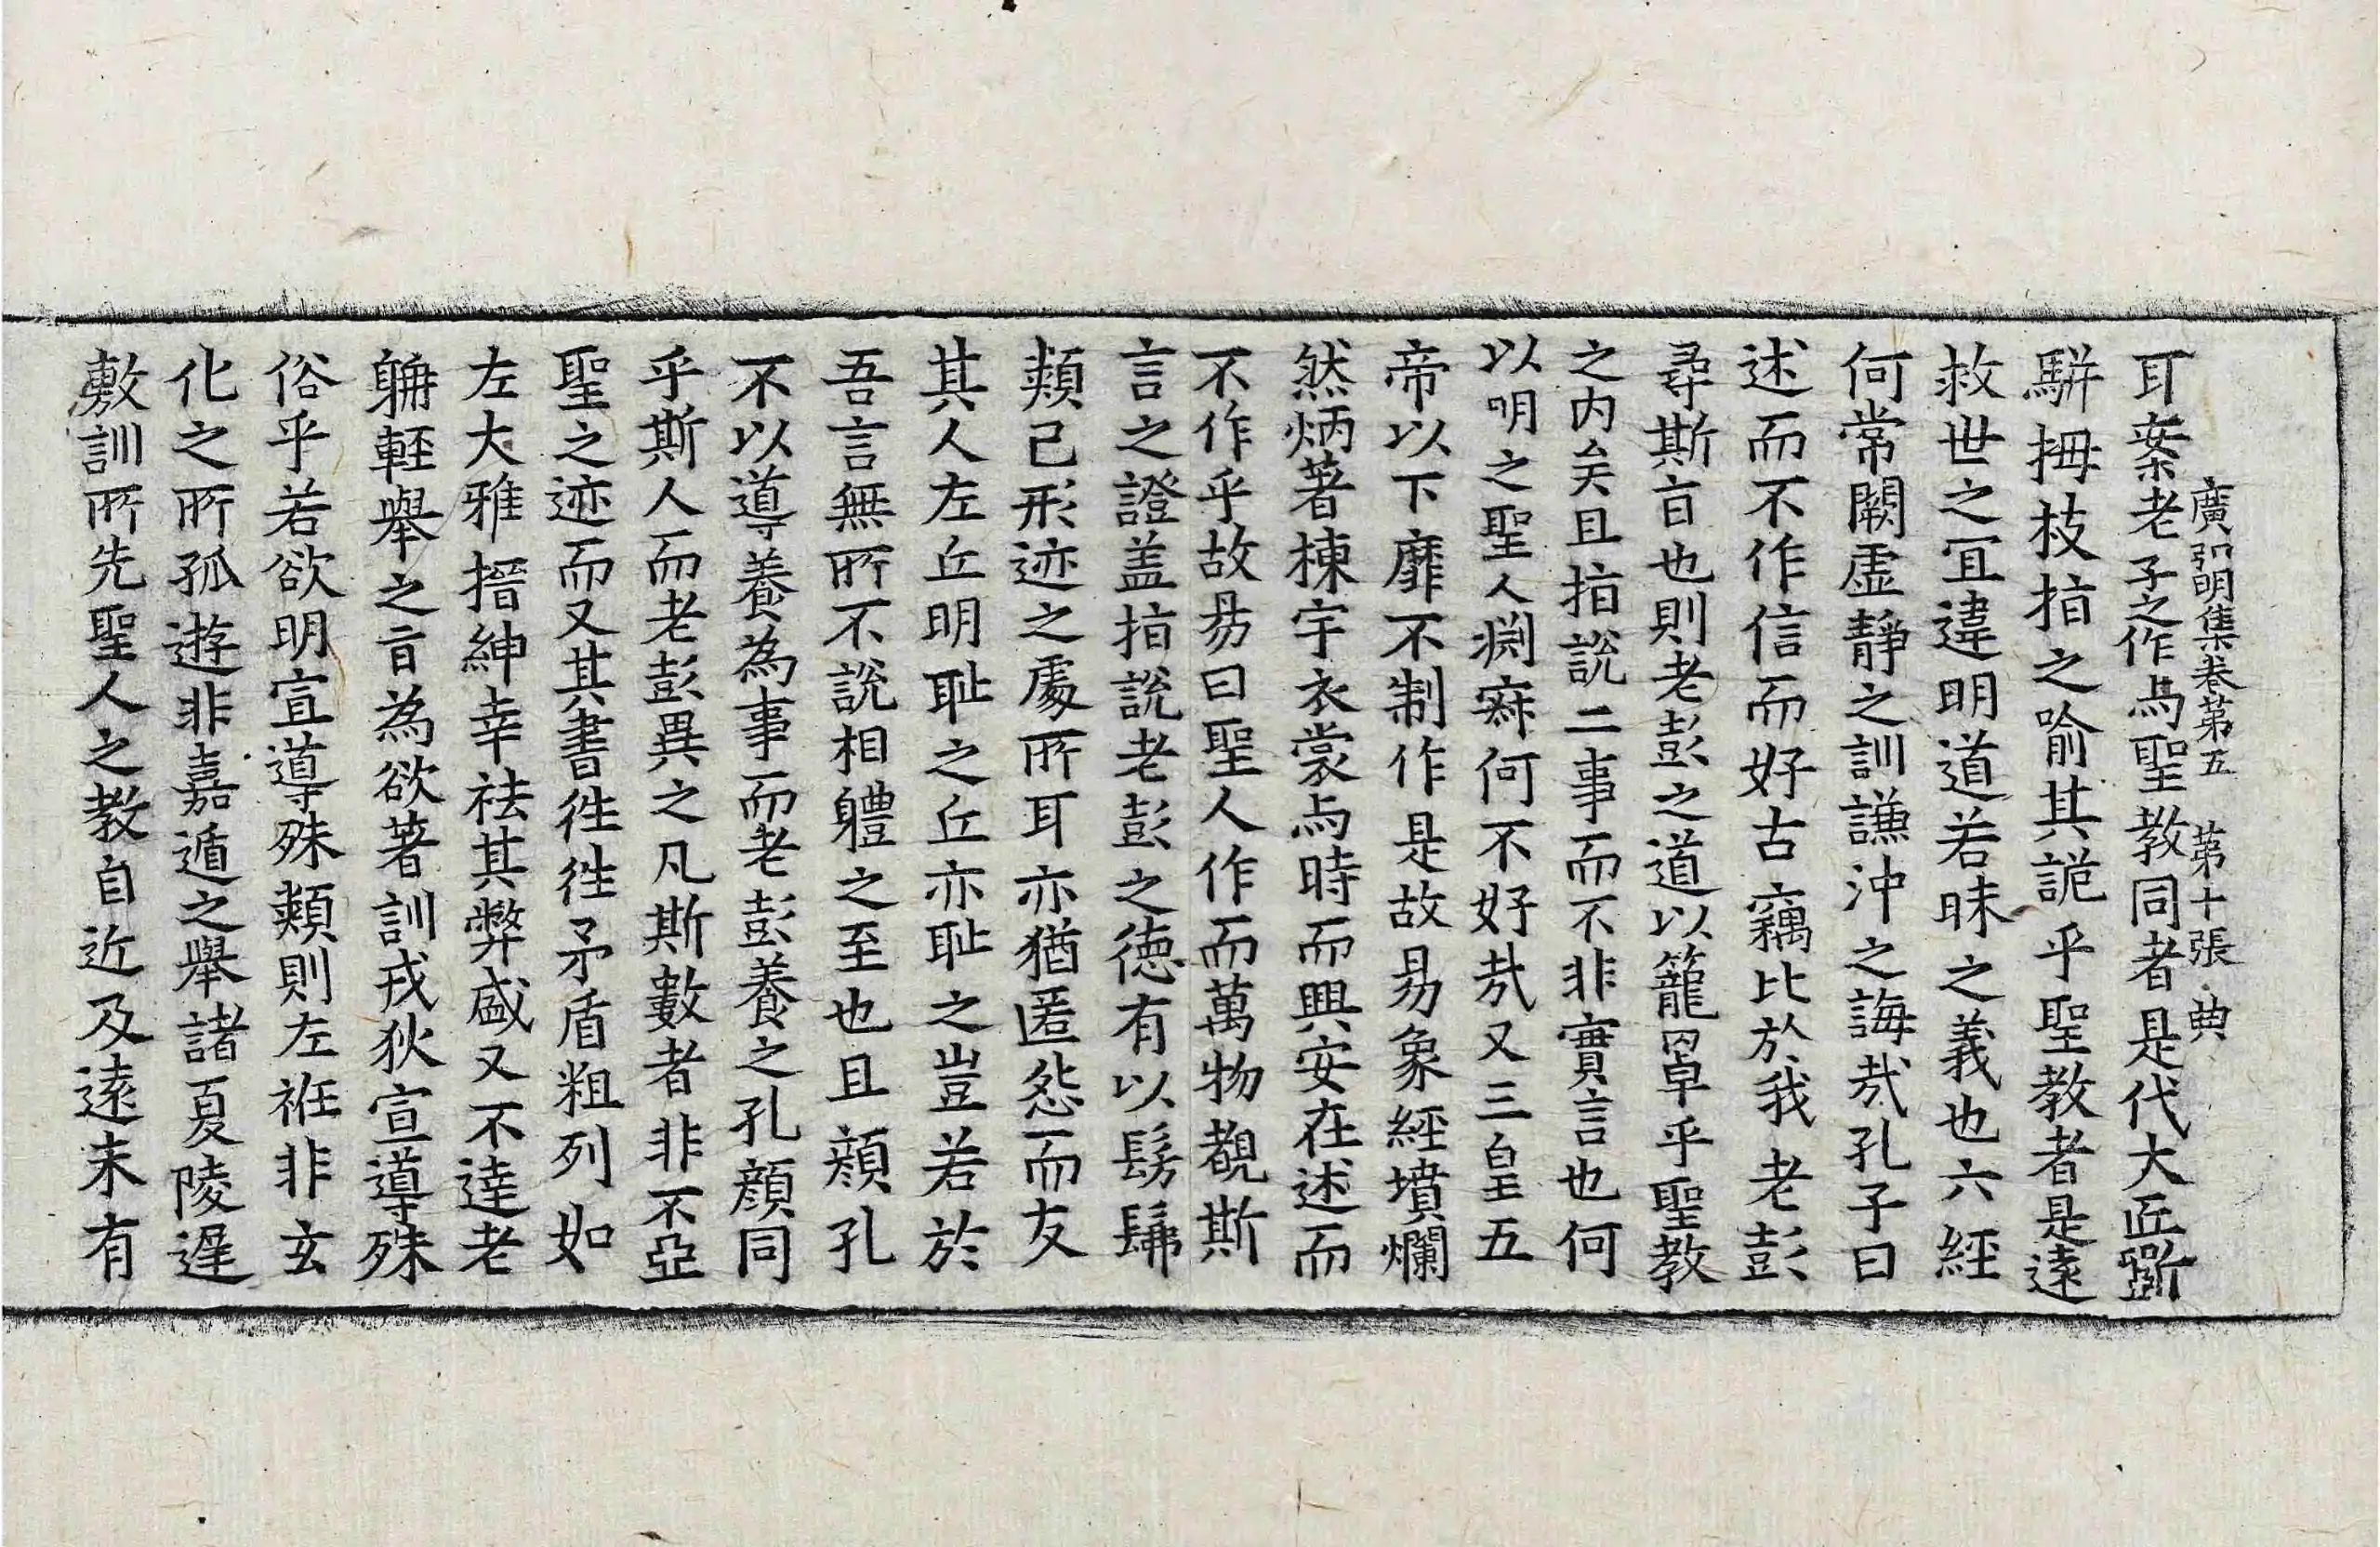 耳案老子之作与聖教同者是代大匠斲
廣弘明集卷第五　第十張　典
駢拇枝指之喻其詭乎聖教者是遠
救世之冝違明道若昧之義也六經
何常闕虛靜之訓謙沖之誨㢤孔子曰
述而不作信而好古竊比於我老彭
尋斯㫖也則老彭之道以籠罩乎聖教
之内矣且指說二事而不非實言也何
以明之聖人渊寐何不好㢤又三皇五
帝以下靡不制作是故昜象經墳爛
然炳著棟宇衣裳与時而興安在述而
不作乎故昜曰聖人作而萬物覩斯
言之證盖指說老彭之德有以髣髴
類己形迹之處所耳亦猶匿怨而友
其人左丘明恥之丘亦恥之豈若於
吾言無所不說相軆之至也且顔孔
不以導養為事而老彭養之孔顔同
乎斯人而老彭異之凡斯數者非不亞
聖之迹而又其書徃徃矛盾粗列如
左大雅搢紳幸祛其弊盛又不達老
聃輕舉之㫖為欲著訓戎狄宣導殊
俗乎若欲明宣導殊類則左衽非玄
化之所孤遊非嘉遁之舉諸夏陵遲
敷訓所先聖人之教自近及遠未有